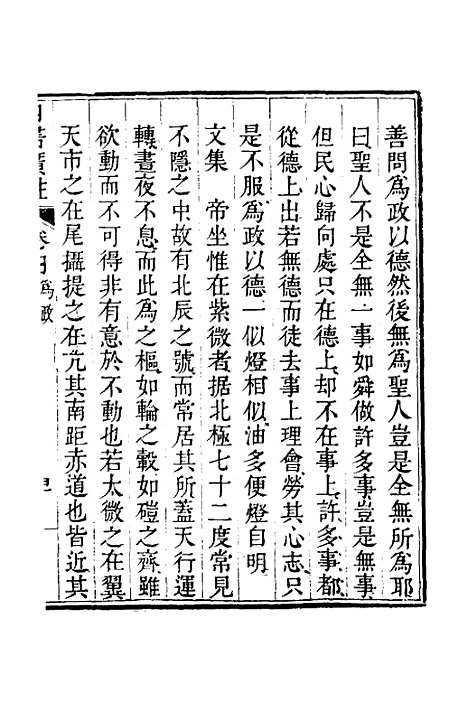 善問爲政以德然後無爲聖人豈是全無所爲耶
曰聖人不是全無一事如舜做許多事豈是無事
但民心歸向處只在德上却不在事上許多事都
從德上出若無德而徒去事上理會勞其心志只
是不服爲政以德一似燈相似油多便燈自明
文集　帝坐惟在紫微者据北極七十二度常見
不隱之中故有北辰之號而常居其所蓋天行運
轉晝夜不息而此爲之樞如輪之轂如磑之齊雖
欲動而不可得非有意於不動也若太微之在翼
天市之在尾攝提之在亢其南距赤道也皆近其
爲政